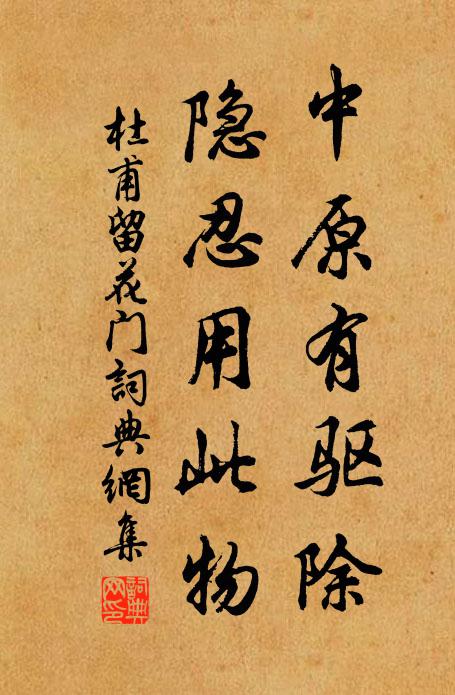 中原有驱除
隐忍用此物
杜甫留花门詞典網集
詞典
网印